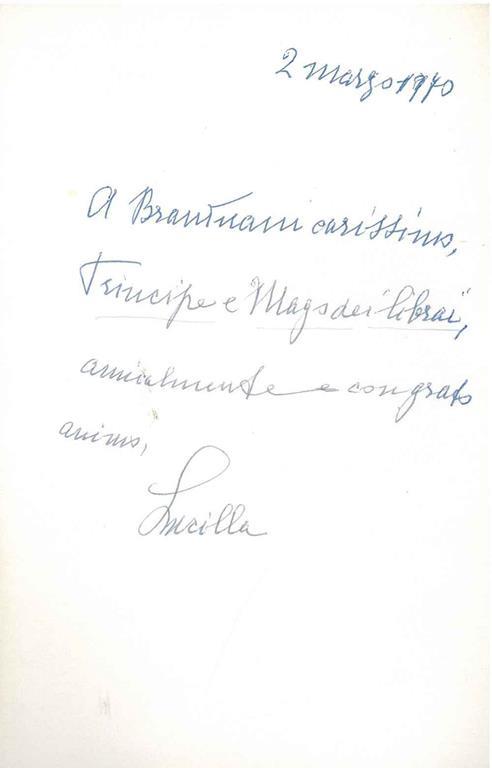 2 marzo 1970
A Brantnani carissimo,
Principe e "Mago dei librai",
amicalmente e con grato
animo,
Lucilla